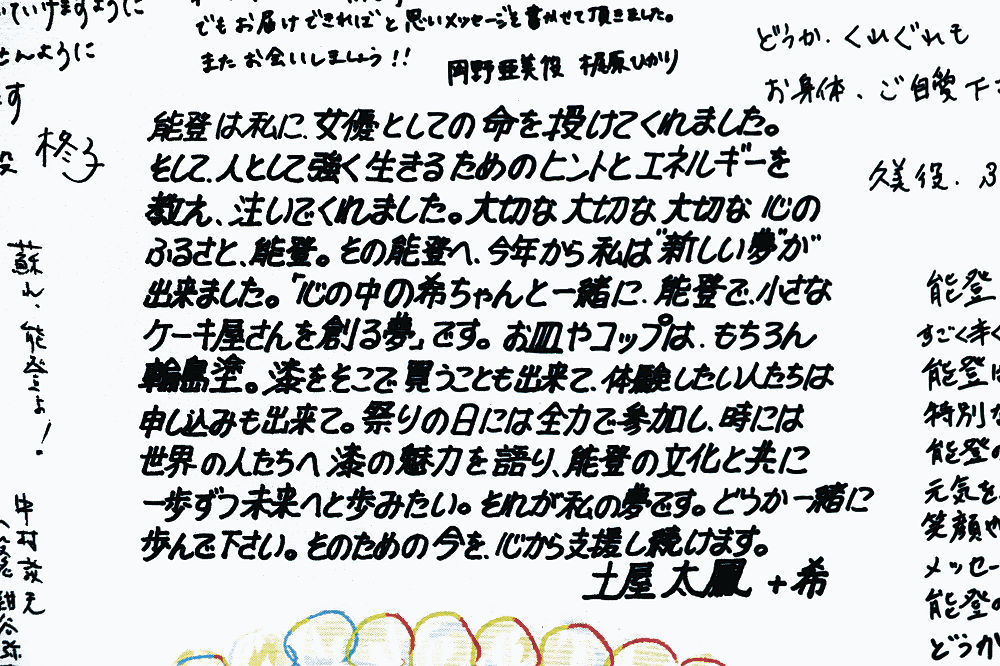 ていけますように
せんように
す
役 柊子
でもお届けできればと思いメッセージを書かせて頂きました。
またお会いしましょう!!
岡野亜美役 梶原ひかり
どうか、くれぐれも
お身体、ご自愛下さ
久美役、ふ
能登は私に、女優としての命を授けてくれました。
そして、人として強く生きるためのヒントとエネルギーを
教え、注いでくれました。大切な大切な大切な心の
ふるさと、能登。その能登へ、今年から私は"新しい夢"が
出来ました。「心の中の希ちゃんと一緒に、能登で、小さな
ケーキ屋さんを創る夢」です。お皿やコップは、もちろん
輪島塗。漆をそこで買うことも出来て、体験したい人たちは
申し込みも出来て。祭りの日には全力で参加し、時には
世界の人たちへ漆の魅力を語り、能登の文化と共に
一歩ずつ未来へと歩みたい。それが私の夢です。どうか一緒に
歩んで下さい。そのための今を、心から支援し続けます。
土屋太鳳+希
蘇れ、能登よ!
中村敦允
紺谷弥
能登
すごく辛く
能登は
特別な
能登の
元気を
笑顔や
メッセー
能登の
どうか